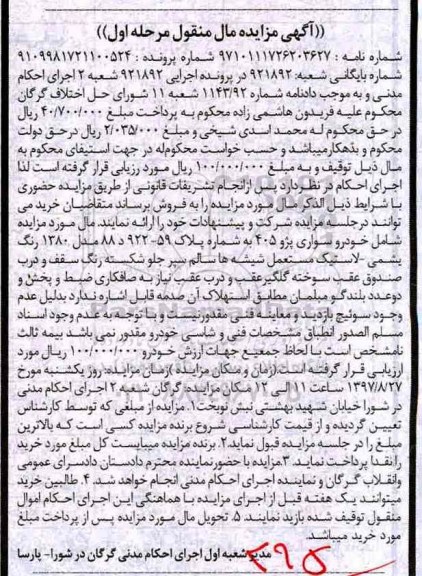 ((آگهی مزایده مال منقول مرحله اول))
شماره نامه : ۹۷۱۰۱۱۱۷۲۶۲۰۳۶۲۷ شماره پرونده : ۹۱۰۹۹۸۱۷۲۱۱۰۰۵۲۴
شماره بایگانی شعبه: ۹۲۱۸۹۲ در پرونده اجرایی ۹۲۱۸۹۲ شعبه ۲ اجرای احکام
مدنی و به موجب دادنامه شماره ۱۱۴۳/۹۲ شعبه ۱۱ شورای حل اختلاف گرگان
محکوم علیه فریدون هاشمی زاده محکوم به پرداخت مبلغ ۴۰/۷۰۰/۰۰۰ ریال
در حق محکوم له محمد اسدی شیخی و مبلغ ۲/۰۳۵/۰۰۰ ریال درحق دولت
محکوم و بدهکارمیباشد و حسب خواست محکوم‌له در جهت استیفای محکوم به
مال ذیل توقیف و به مبلغ ۱۰۰/۰۰۰/۰۰۰ ریال مورد رزیابی قرار گرفته است لذا
اجرای احکام در نظردارد پس ازانجام تشریفات قانونی از طریق مزایده حضوری
با شرایط ذیل الذکرمال مورد مزایده را به فروش برساند متقاضیان خرید می
توانند درجلسه مزایده شرکت و پیشنهادات خود را ارائه نمایند. مال مورد مزایده
شامل خودرو سواری پژو ۴۰۵ به شماره پلاک ۵۹-۹۲۲ د ۸۸ مدل ۱۳۸۰ رنگ
یشمی -لاستیک مستعمل شیشه ها سالم سپر جلو شکسته رنگ سقف و درب
صندوق عقب سوخته گلگیرعقب و درب عقب نیاز به صافکاری ضبط و پخش و
دوعدد بلندگو مبلمان مطابق استهلاک آن صدمه قابل اشاره ندارد بدلیل عدم
وجود سوئیچ بازدید و معاینه فنی مقدورنیست و با توجه به عدم وجود اسناد
مسلم الصدور انطباق مشخصات فنی و شاسی خودرو مقدور نمی باشد بیمه ثالث
نامشخص است با لحاظ جمعیع جهات ارزش خودرو ۱۰۰/۰۰۰/۰۰۰ ریال مورد
ارزیابی قرار گرفته است.(زمان و مکان مزایده )زمان مزایده: روز یکشنبه مورخ
۱۳۹۷/۸/۲۷ ساعت ۱۱الی ۱۲ مکان مزایده: گرگان شعبه ۲ اجرای احکام مدنی
در شورا خیابان شهید بهشتی نبش نوبخت۱. مزایده از مبلغی که توسط کارشناس
تعیین گردیده و از قیمت کارشناسی شروع برنده مزایده کسی است که بالاترین
مبلغ را در جلسه مزایده قبول نماید.۲. برنده مزایده میبایست کل مبلغ مورد خرید
را نقدا پرداخت نماید. ۳.مزایده با حضورنماینده محترم دادستان دادسرای عمومی
وانقلاب گرگان و نماینده اجرای احکام مدنی انجام خواهد شد. ۴. طالبین خرید
میتوانند یک هفته قبل از اجرای مزایده با هماهنگی این اجرای احکام اموال
منقول توقیف شده بازید نمایند. ۵. تحویل مال مورد مزایده پس از پرداخت مبلغ
مورد خرید میباشد.
مدیر شعبه اول اجرای احکام مدنی گرگان در شورا- پارسا